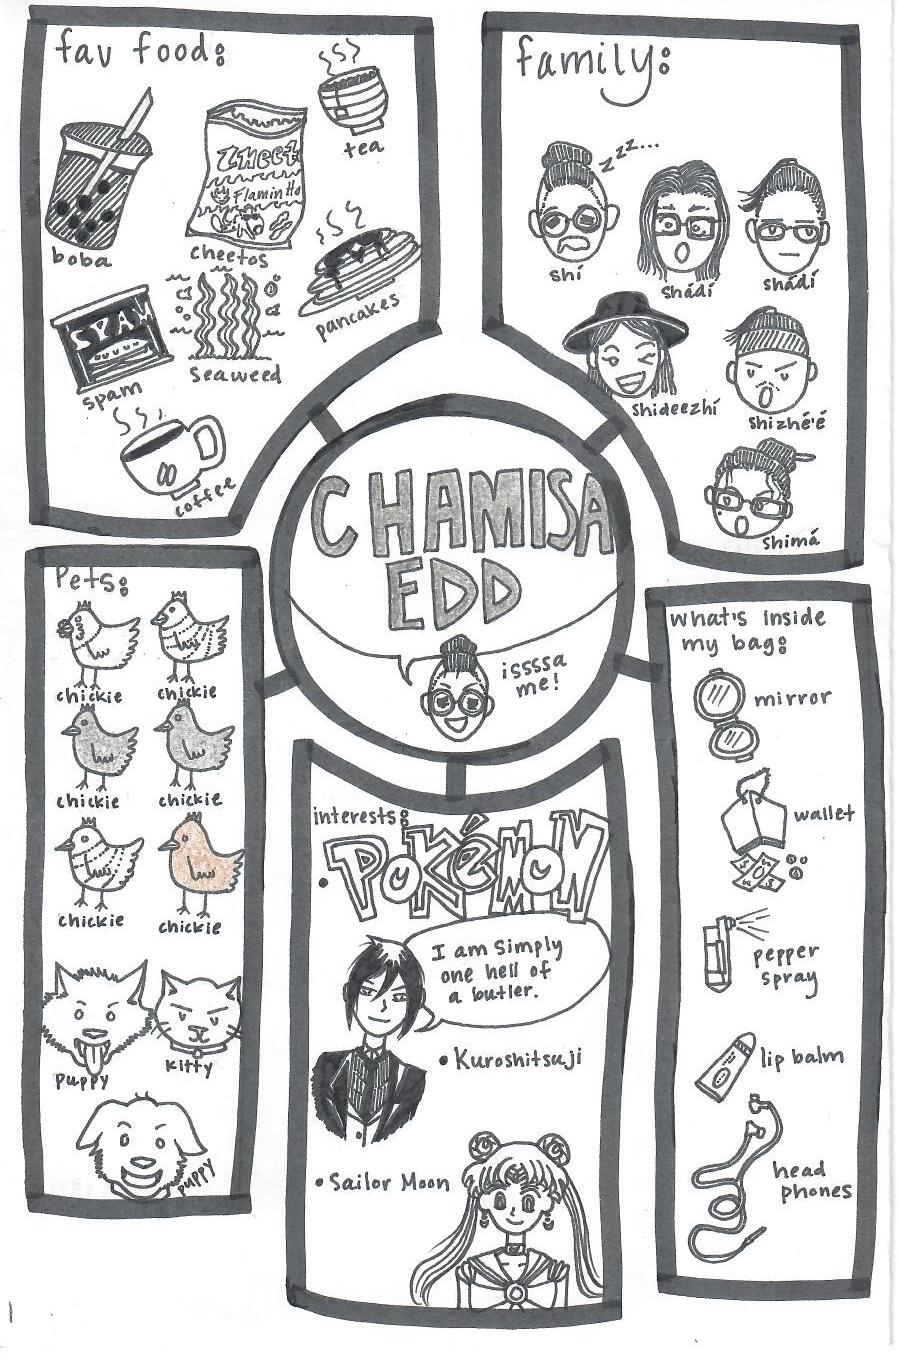 fav food:
tea
boba
Cheet
Flamin Ho
cheetos
pancakes
SPAM
spam
seaweed
coffee
family:
zzz...
shí
shádí
shádí
shideezhí
shizhé'é
shimá
CHAMISA
EDD
issssa
me!
Pets:
chickie
chickie
chickie
chickie
chickie
chickie
puppy
kitty
puppy
interests:
• POKéMON
I am simply
one hell of
a butler.
• Kuroshitsuji
• Sailor Moon
what's inside
my bag:
mirror
wallet
pepper
spray
lip balm
head
phones